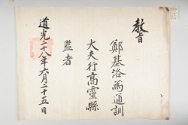 敎旨
鄭基洛爲通訓
大夫行高靈縣
監者
道光二十八年六月二十五日